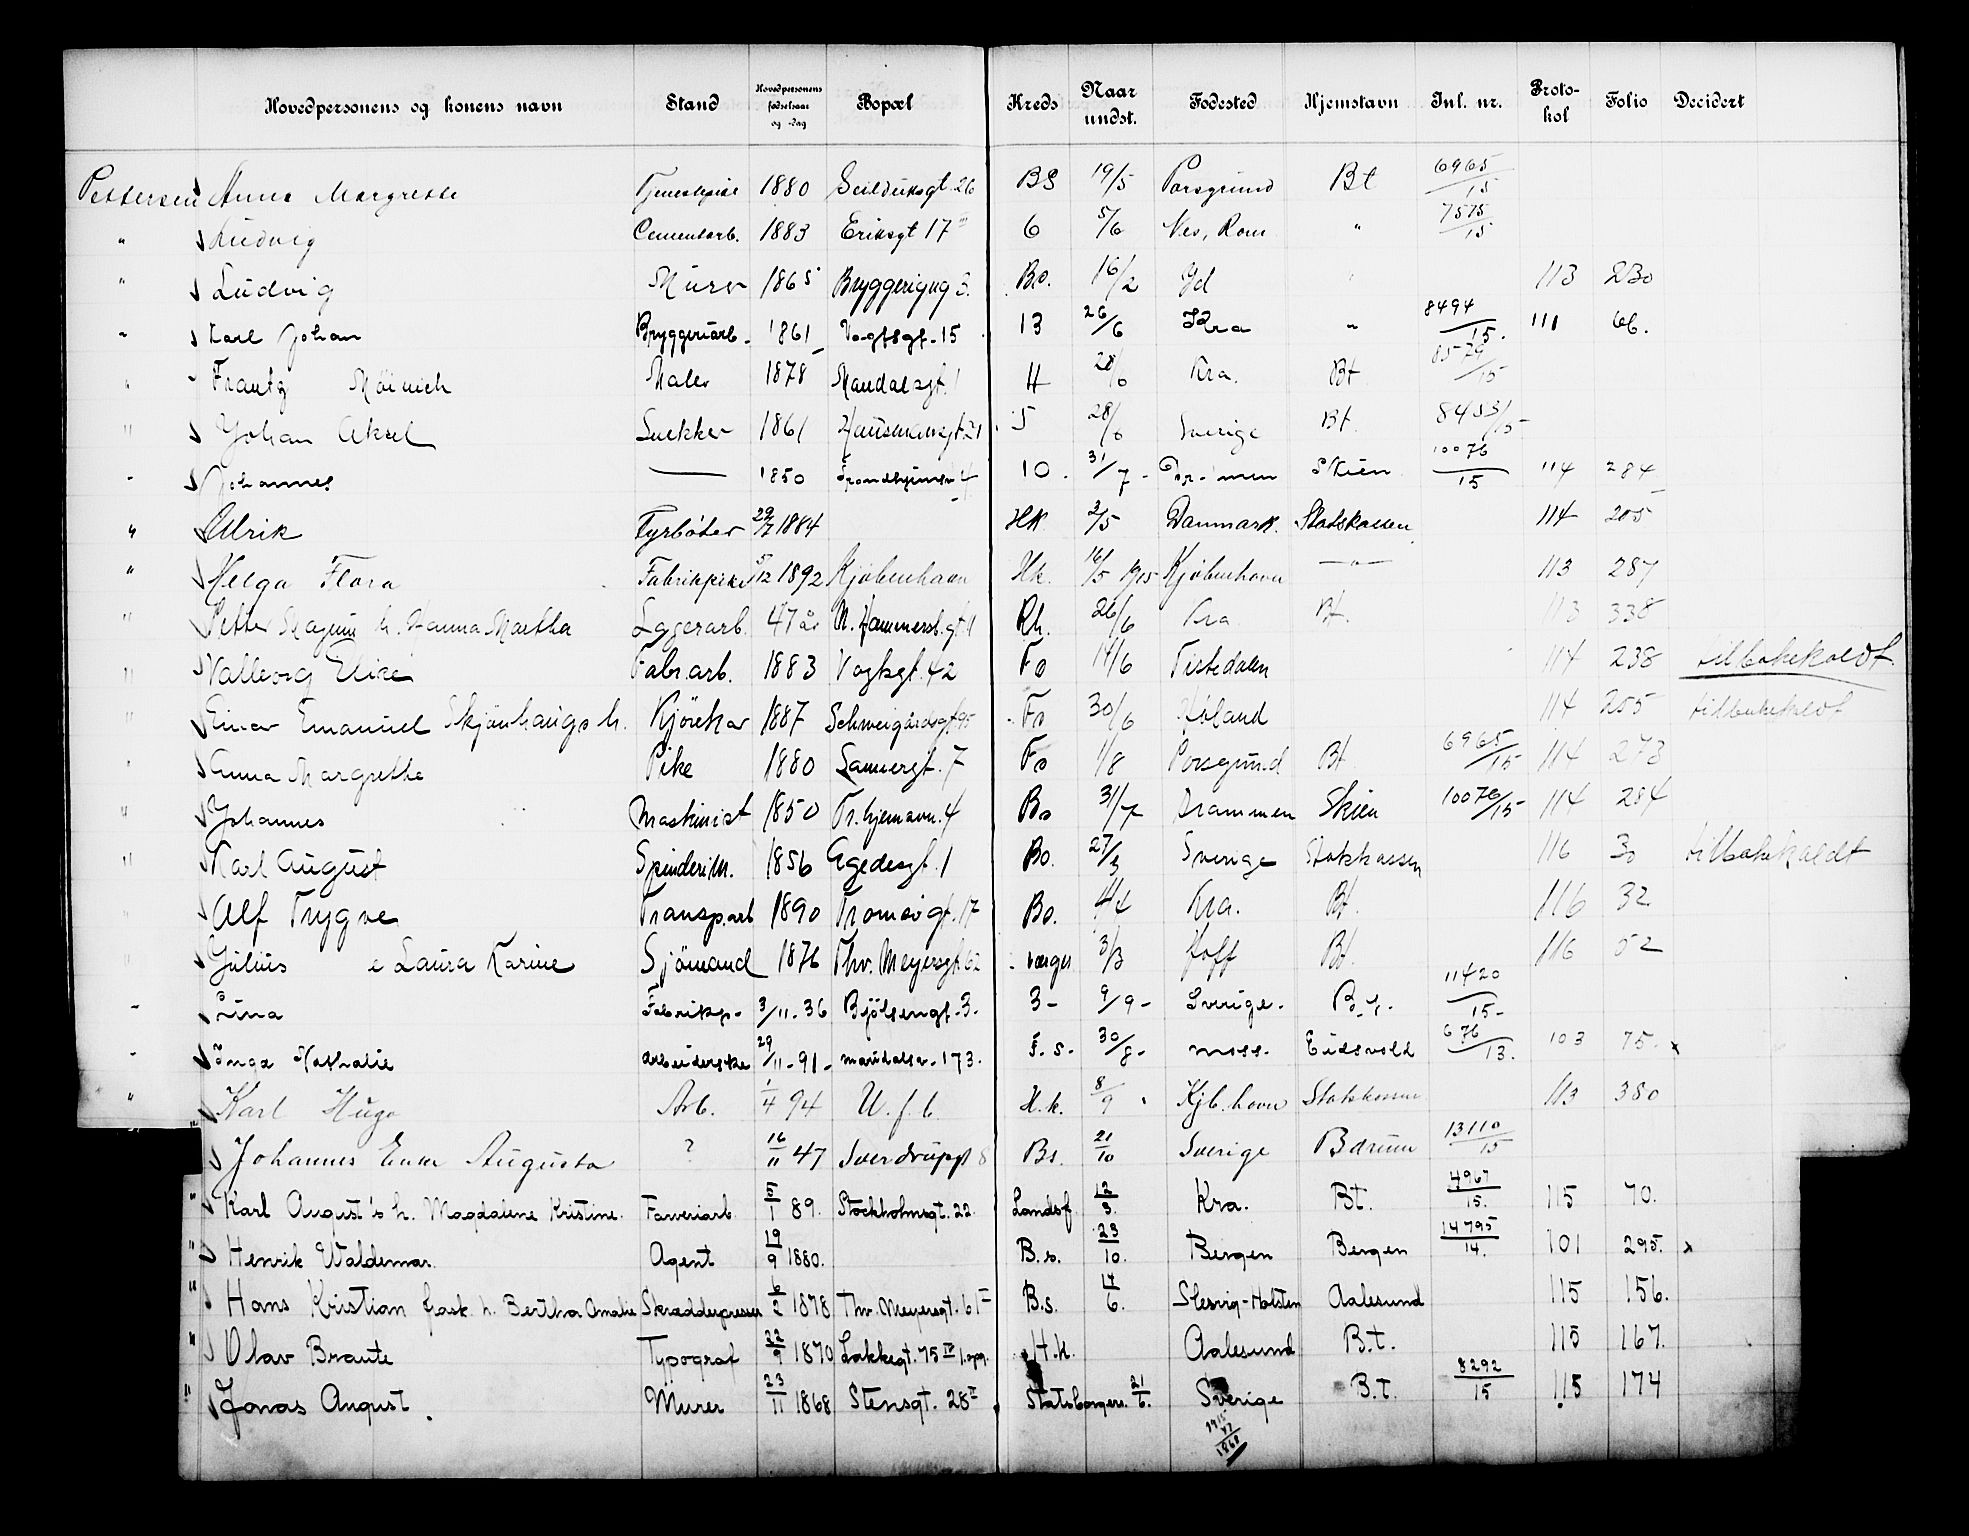 Hovedpersonens og konens navn Stand Hovedpersonens fødselsaar og -dag Bopæl Kreds Naar undst. Fødested Hjemstavn Inl. nr. Protokol Folio Decidert
Pettersen Anna Margrethe Tjenestepike 1880 Seilduksgt. 26 BS 19/5 Porsgrund Bt 6965/15
" Ludvig Cementarb. 1883 Eriksgt 17 III 6 5/6 Nes, Rom " 7575/15
" Ludvig Murer 1865 Bryggerigug 3. Bo. 16/2 113 230
" Karl Johan Bryggeriarb. 1861 Vogtsgt. 15 13 26/6 Kra " 8494/15. 111 66.
" Frantz Maler 1878 Mandalsgt. 1 4 28/6 Kra. Bt 8579/15
" Johan Aksel Snekker 1861 Hausmannsgt. 21 5 28/6 Sverige Bt. 8453/15
" Johannes — 1850 4 10. 31/7 - Skien 10076/15 114 284
" Ulrik Fyrbøter 29/7 1884 HK. 2/5 Danmark. Statskassen. 114 205
" Helga Flora Fabrikpike 5/12 1892 Kjøbenhavn Hk. 16/5 1915 Kjøbenhavn —"— 113 287
" Petter Magnus h. Hanna Martha Lagerarb. 47 år N. Hammersb.gt. 1 Rh. 26/6 Kra Bt. 113 338
" Valborg Elise Fabr.arb. 1883 Vogtsgt. 42 Fo 14/6 Tistedalen 114 238 tilbakekaldt.
" Einar Emanuel Skjønhaugs h. Kjørekar 1887 Schweigårdsgt. 95 Fo 30/6 Høland 114 255 tilbakekaldt
" Anna Margrethe Pike 1880 Sannergt. 7 Fo 1/8 Porsgrund Bt. 6965/15 114 273
" Johannes Maskinist 1850 Tr.hjemsvn. 4 Bo 31/7 Drammen Skien 10076/15 114 284
" Karl August Spinderim. 1856 Egedesgt. 1 Bo. 27/3 Sverige Statskassen 116 30 tilbakekaldt
" Alf Trygve Transp.arb 1890 Tromsøgt. 17 Bo. 4/4 Kra. Bt. 116 32
" Julius e Laura Karine Sjømand 1876 Thv. Meyersgt. 62 værger 3/3 Hoff Bt. 116 52
" Lina Fabrikp. 3/11. 36 Bjölsengt. 3. 3- 9/9- Sverige. B.t. 11420/15-
" Inga Nathalie Arbeiderske 29/11. 91. maridalsv. 173. F. S. 30/8- Moss. Eidsvold 676/13. 103 75. x
" Karl Hugo Arb. 1/4 94 U. f. b. H.k. 8/9 Kjb.havn Statskassen 113 380
" Johannes Enke Augusta ? 16/11 47 Sverdrupsgt 8 Bs. 21/10 Sverige Bærum 13110/15
" Karl August's h. Magdalene Kristine. Farveriarb. 5/1 89. Stockholmsgt. 22. Landsf. 12/3. Kra. Bt. 4967/15. 115 70.
" Henrik Waldemar. Agent 19/9 1880. B.s. 23/10. Bergen Bergen 14795/14. 101 295. x
" Hans Kristian frask. h. Bertha Amalie Skrædderpresser 6/2 1878 Thv. Meyersgt. 61 II B.s. 14/6. Slesvig-Holsten Aalesund 115 156.
" Olav Braute Typograf 22/9 1870 Lakkegt. 75 IV 1.opg. H.k. Aalesund B.t. 115 167.
" Jonas August. Murer 23/11 1868 Stensgt. 28 II Statsborgers. 21/6. Sverige B.T. 8292/15 115 174
1915
47
1868